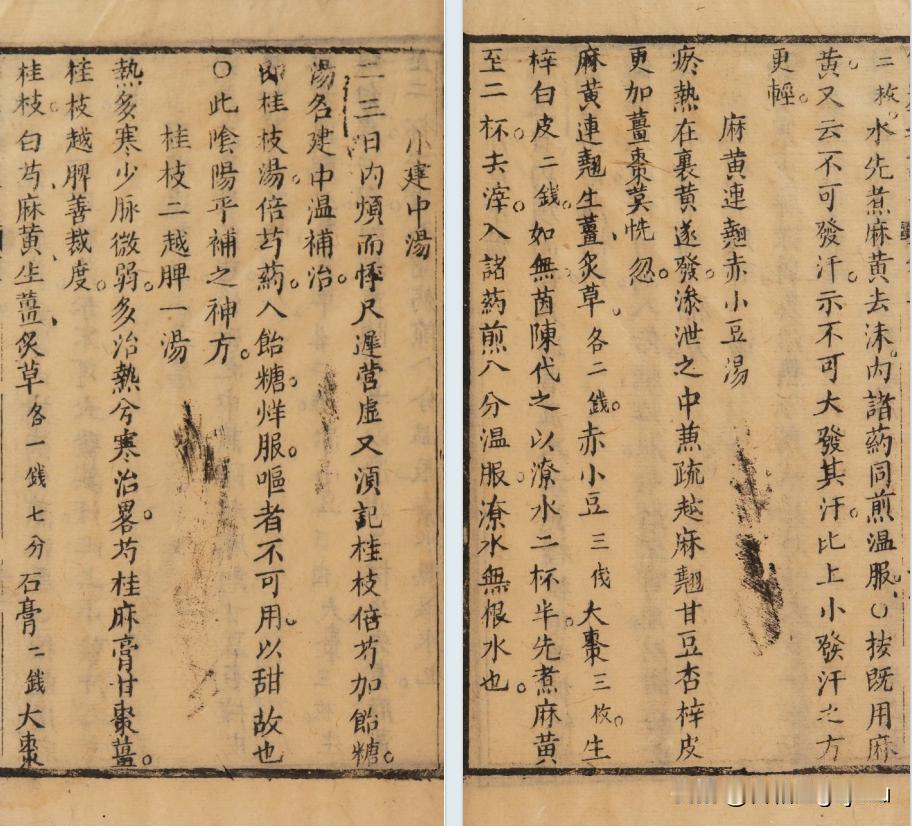 二枚水先煮麻黃去沫內諸药同煎溫服〇按既用麻
黃又云不可發汗示不可大發其汗比上小發汗之方
更輕
麻黃連翹赤小豆湯
瘀熱在裏黃遂發滲泄之中兼疏越麻翹甘豆杏梓皮
更加薑棗莫恍忽
麻黃連翹生薑炙草各二錢赤小豆三錢大棗三枚生
梓白皮二錢如無茵陳代之以潦水二杯半先煮麻黃
至二杯去滓入諸药煎八分溫服潦水無根水也
小建中湯
二三日內煩而悸尺遲營虛又須記桂枝倍芍加飴糖
湯名建中溫補治
即桂枝湯倍芍药入飴糖烊服嘔者不可用以甜故也
〇此陰陽平補之神方
桂枝二越脾一湯
熱多寒少脉微弱多治熱兮寒治畧芍桂麻膏甘棗薑
桂枝越脾善裁度
桂枝白芍麻黃生薑炙草各一錢七分石膏二錢大棗